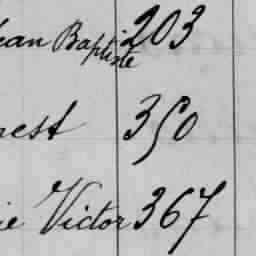 ean Baptiste 203
nest 350
ie Victor 367